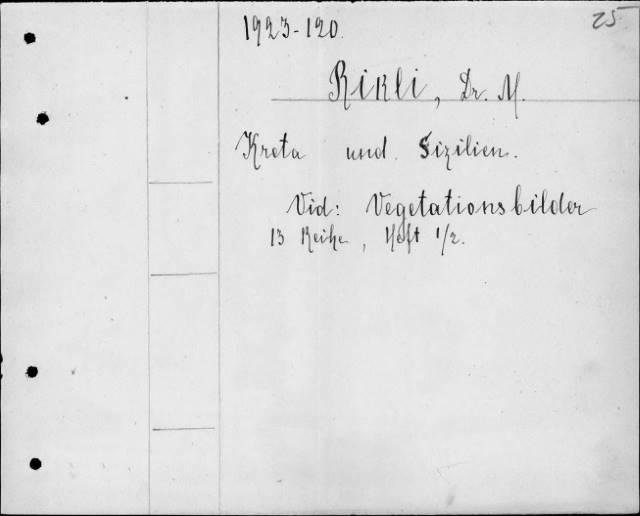 25
1923-120.
Rikli, Dr. M.
Kreta und Sizilien.
Vid: Vegetationsbilder
13 Reihe, Heft 1/2.